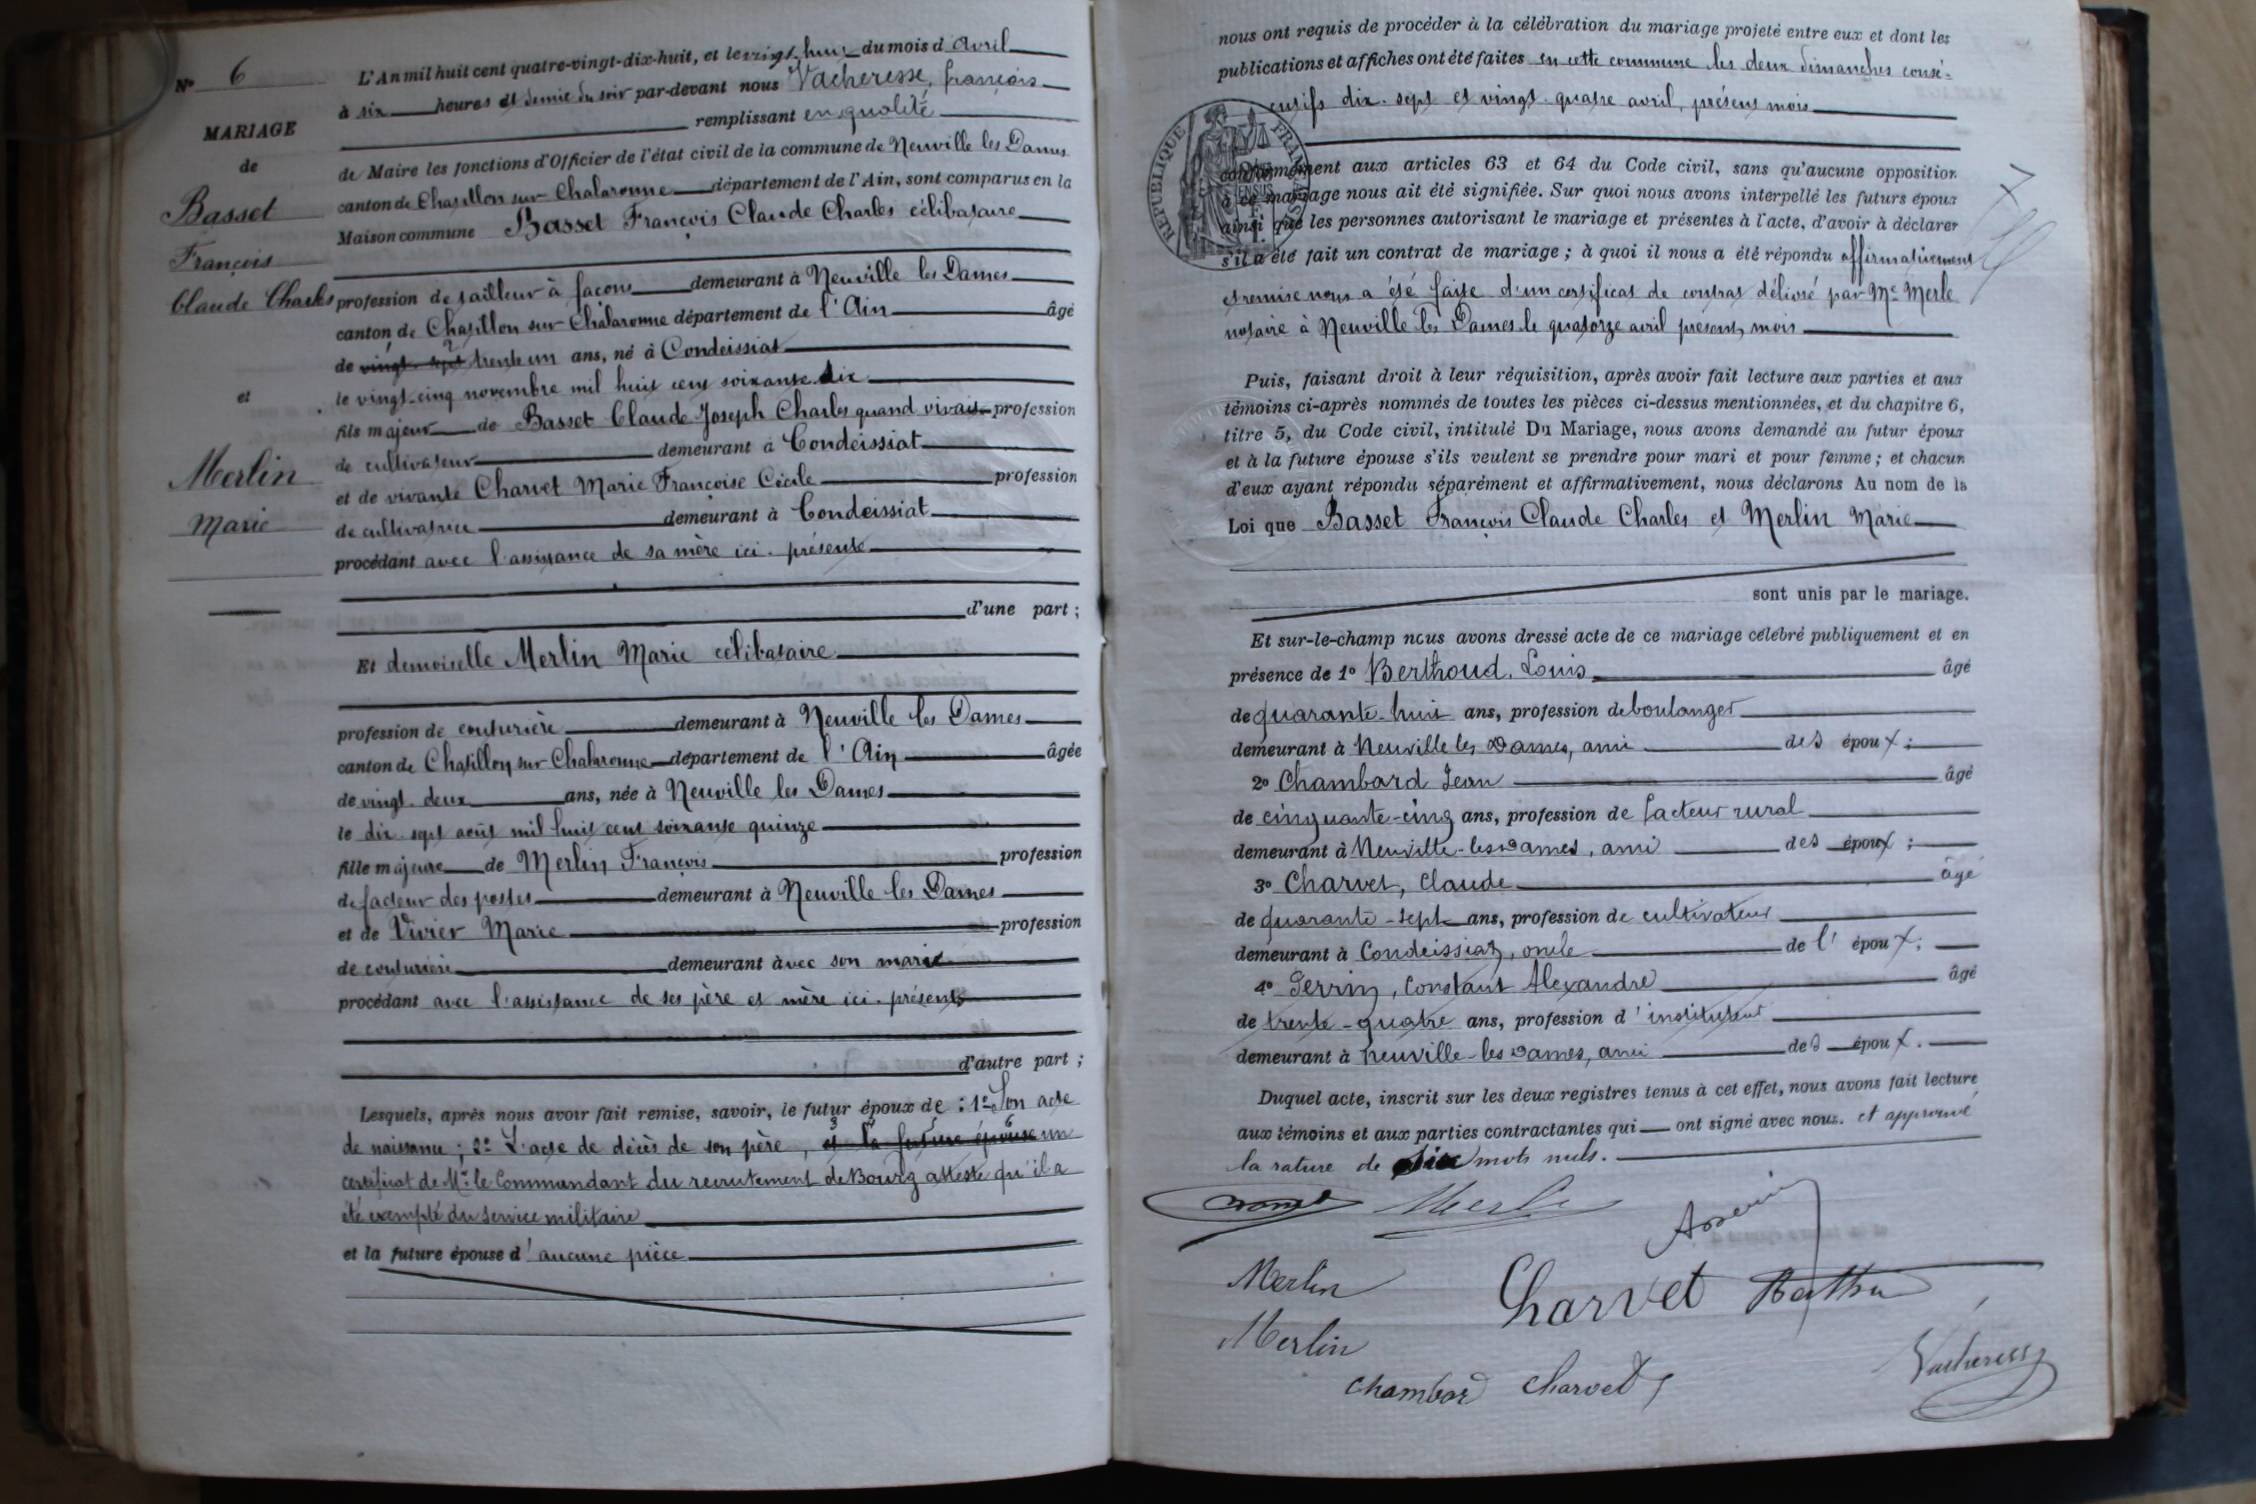 Nº 6
MARIAGE
de
Basset
François
Claude Charles
et
Merlin
Marie
L'An mil huit cent quatre-vingt-dix-huit, et le vingt-huit du mois d'avril
à six heures et demie du soir par-devant nous Vacheresse, françois
remplissant en qualité
de Maire les fonctions d'Officier de l'état civil de la commune de Neuville les Dames
canton de Chatillon sur Chalaronne département de l'Ain, sont comparus en la
Maison commune Basset François Claude Charles célibataire
profession de tailleur à façons demeurant à Neuville les Dames
canton de Chatillon sur Chalaronne département de l'Ain âgé
de vingt-sept trente un ans, né à Condeissiat
le vingt-cinq novembre mil huit cent soixante dix
fils majeur de Basset Claude Joseph Charles quand vivait profession
de cultivateur demeurant à Condeissiat
et de vivante Charvet Marie Françoise Cécile profession
de cultivatrice demeurant à Condeissiat
procédant avec l'assistance de sa mère ici présente
d'une part ;
Et demoiselle Merlin Marie célibataire
profession de couturière demeurant à Neuville les Dames
canton de Chatillon sur Chalaronne département de l'Ain âgée
de vingt-deux ans, née à Neuville les Dames
le dix-sept août mil huit cent soixante quinze
fille majeure de Merlin François profession
de facteur des postes demeurant à Neuville les Dames
et de Vivier Marie profession
de couturière demeurant avec son marie
procédant avec l'assistance de ses père et mère ici présents
d'autre part ;
Lesquels, après nous avoir fait remise, savoir, le futur époux de : 1º Son acte
de naissance ; 2º L'acte de décès de son père, et la future épouse un
certificat de Mr le Commandant du recrutement de Bourg atteste qu'il a
été exempté du service militaire
et la future épouse d'aucune pièce
nous ont requis de procéder à la célébration du mariage projeté entre eux et dont les
publications et affiches ont été faites en cette commune les deux dimanches consé-
cutifs dix-sept et vingt-quatre avril, présent mois
RÉPUBLIQUE FRANÇAISE
conformément aux articles 63 et 64 du Code civil, sans qu'aucune opposition
à ce mariage nous ait été signifiée. Sur quoi nous avons interpellé les futurs époux
ainsi que les personnes autorisant le mariage et présentes à l'acte, d'avoir à déclarer
s'il a été fait un contrat de mariage ; à quoi il nous a été répondu affirmativement
et remise nous a été faite d'un certificat de contrat délivré par Me Merle
notaire à Neuville les Dames le quatorze avril présent mois
Puis, faisant droit à leur réquisition, après avoir fait lecture aux parties et aux
témoins ci-après nommés de toutes les pièces ci-dessus mentionnées, et du chapitre 6,
titre 5, du Code civil, intitulé Du Mariage, nous avons demandé au futur époux
et à la future épouse s'ils veulent se prendre pour mari et pour femme ; et chacun
d'eux ayant répondu séparément et affirmativement, nous déclarons Au nom de la
Loi que Basset François Claude Charles et Merlin Marie
sont unis par le mariage.
Et sur-le-champ nous avons dressé acte de ce mariage célébré publiquement et en
présence de 1º Berthoud, Louis âgé
de quarante-huit ans, profession de boulanger
demeurant à Neuville les Dames, ami des époux ;
2º Chambard Jean âgé
de cinquante-cinq ans, profession de facteur rural
demeurant à Neuville-les-Dames, ami des époux ;
3º Charvet, Claude âgé
de quarante-sept ans, profession de cultivateur
demeurant à Condeissiat, oncle de l'époux ;
4º Perrin, Constant Alexandre âgé
de trente-quatre ans, profession d'instituteur
demeurant à Neuville-les Dames, ami des époux.
Duquel acte, inscrit sur les deux registres tenus à cet effet, nous avons fait lecture
aux témoins et aux parties contractantes qui ont signé avec nous. et approuvé
la rature de six mots nuls.
Merlin
Merlin
Charvet
Chambard
Charvet
Vacheresse